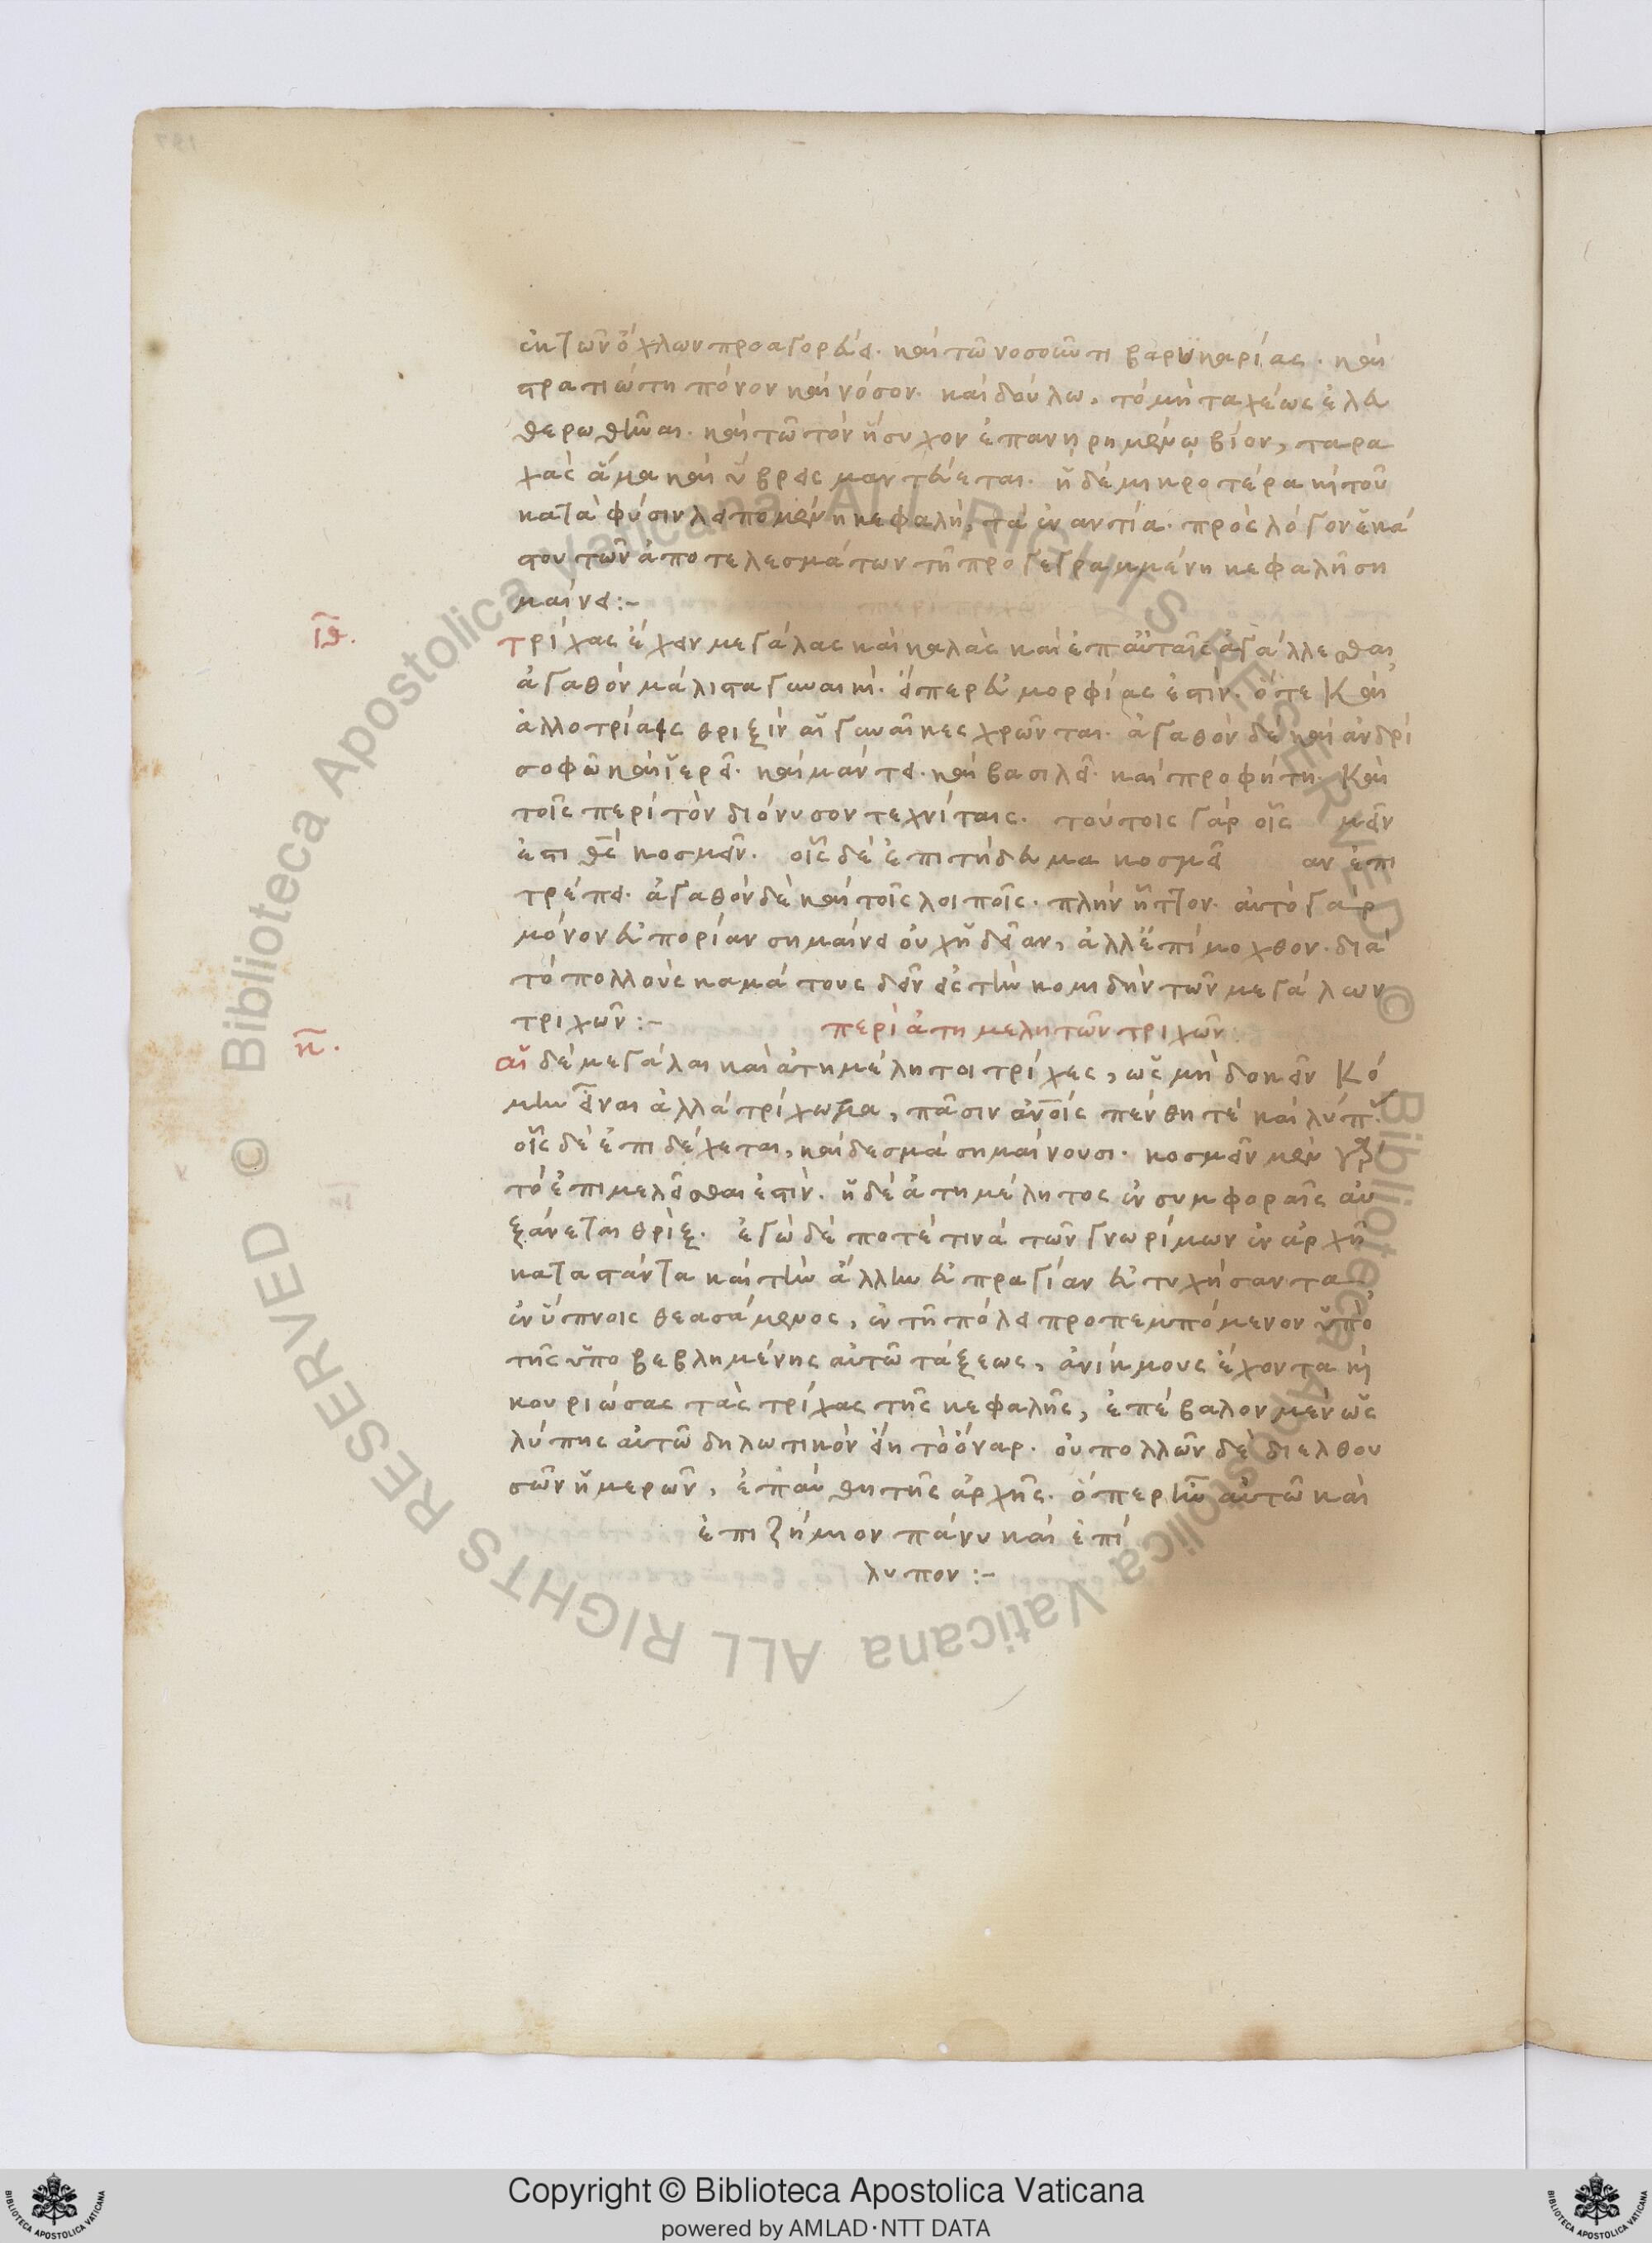 ἐκ τῶν ὄχλων προαγορεύει. καὶ τῶ νοσοῦντι βαρυκαρίας. καὶ
στρατιώτη πόνον καὶ νόσον. καὶ δούλω, τὸ μὴ ταχέως ἐλευ
θερωθῆναι. καὶ τῶ τὸν ἥσυχον ἐπανηρημένω βίον, ταρα
χὰς ἅμα καὶ ὕβρεις μαντεύεται. ἡ δὲ μικροτέρα καὶ τοῦ
κατὰ φύσιν λειπομένη κεφαλὴ, τὰ ἐναντία. πρὸς λόγον ἑκά
στου τῶν ἀποτελεσμάτων τῆ προγεγραμμένη κεφαλῆ ση
μαίνει:-
ιθ.
τρίχας ἔχειν μεγάλας καὶ καλὰς καὶ ἐπ' αὐταῖς ἀγάλλεσθαι
ἀγαθὸν μάλιστα γυναικί. ὑπὲρ εὐμορφίας ἐστίν. ὅτε καὶ
ἀλλοτρίαις θριξὶν αἱ γυναῖκες χρῶνται. ἀγαθὸν δὲ καὶ ἀνδρὶ
σοφῶ καὶ ἱερεῖ. καὶ μάντει. καὶ βασιλεῖ. καὶ προφήτη. καὶ
τοῖς περὶ τὸν διόνυσον τεχνίταις. τούτοις γὰρ οἷς μεῖν
ἔστι θε κοσμεῖν. οἷς δὲ ἐπιτήδευμα κοσμεῖ αν ἐπι
τρέπει. ἀγαθὸν δὲ καὶ τοῖς λοιποῖς. πλὴν ἧττον. αὐτὸ γὰρ
μόνον εὐπορίαν σημαίνει οὐχ ἡδεῖαν, ἀλλ' ἐπίμοχθον. διὰ
τὸ πολλοὺς καμάτους δεῖν εἰς τὴν κομιδὴν τῶν μεγάλων
τριχῶν:- περὶ ἀτημελήτων τριχῶν
κ.
αἱ δὲ μεγάλαι καὶ ἀτημέλητοι τρίχες, ὡς μὴ δοκεῖν κό
μην εἶναι ἀλλὰ τρίχωμα, πᾶσιν ἀνοῖς πένθη τὲ καὶ λύπ
οἷς δὲ ἐπιδέχεται, καὶ δεσμὰ σημαίνουσι. κοσμεῖν μὲν γὰρ
τὸ ἐπιμελεῖσθαι ἐστίν. ἡ δὲ ἀτημέλητος ἐν συμφοραῖς αὐ
ξάνεται θρίξ. ἐγὼ δέ ποτέ τινα τῶν γνωρίμων ἐν ἀρχῆ
καταστάντα καὶ τὴν ἄλλην εὐπραγίαν εὐτυχήσαντα
ἐν ὕπνοις θεασάμενος, ἐν τῆ πόλει προπεμπόμενον ὑπὸ
τῆς ὑποβεβλημένης αὐτῶ τάξεως, ἀνίκμους ἔχοντα καὶ
κουριώσας τὰς τρίχας τῆς κεφαλῆς, ἐπέβαλον μὲν ὡς
λύπης αὐτῶ δηλωτικὸν εἴη τὸ ὄναρ. οὐ πολλῶν δὲ διελθου
σῶν ἡμερῶν, ἐπαύθη τῆς ἀρχῆς. ὅπερ ἦν αὐτῶ καὶ
ἐπιζήμιον πάνυ καὶ ἐπί
λυπον:-
Copyright © Biblioteca Apostolica Vaticana
powered by AMLAD·NTT DATA